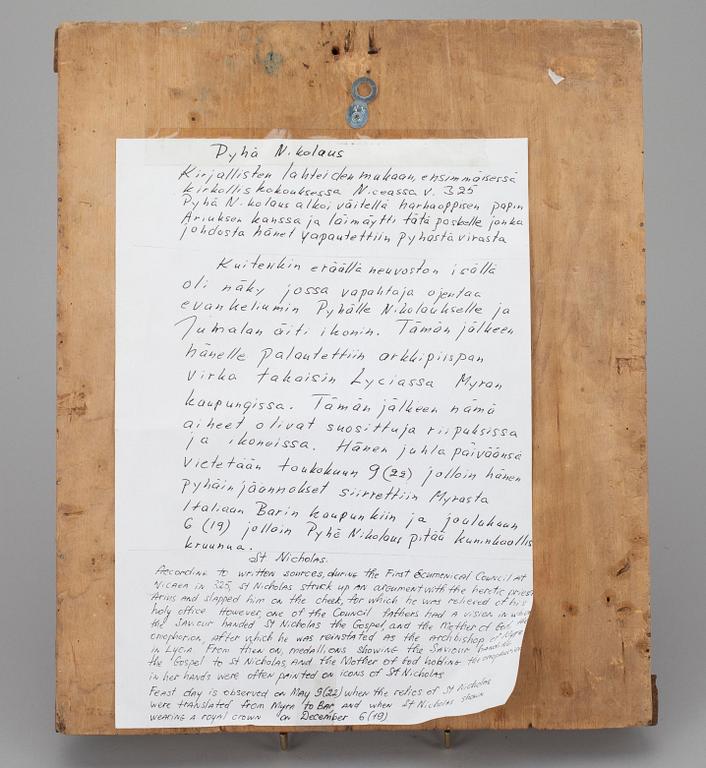 Pyhä Nikolaus
Kirjallisten lahteiden mukaan, ensimmäisessä
kirkolliskokouksessa Niceassa v. 325
Pyhä Nikolaus alkoi väitellä harhaoppisen papin
Ariuksen kanssa ja läimäytti tätä poskelle jonka
johdosta hänet vapautettiin pyhästä virasta
Kuitenkin eräällä neuvoston isällä
oli näky jossa vapahtaja ojentaa
evankeliumin Pyhälle Nikolaukselle ja
Jumalan äiti ikonin. Tämän jälkeen
hänelle palautettiin arkkipiispan
virka takaisin Lyciassa Myran
kaupungissa. Tämän jälkeen nämä
aiheet olivat suosittuja riipuksissa
ja ikoneissa. Hänen juhlapäiväänsä
vietetään toukokuun 9(22) jolloin hänen
pyhäinjäännökset siirrettiin Myrasta
Italiaan Barin kaupunkiin ja joulukuun
6 (19) jolloin Pyhä Nikolaus pitää kuninkaallis
kruunua.
St Nicholas.
According to written sources, during the First Ecumenical Council at
Nicaea in 325, St Nicholas struck up an argument with the heretic priest
Arius and slapped him on the cheek, for which he was relieved of his
holy office However, one of the Council fathers had a vision in which
the Saviour handed St Nicholas the Gospel, and the Mother of God, the
omophorion, after which he was reinstated as the Archbishop of Myra
in Lycia From then on, medallions showing the Saviour handing
the Gospel to St Nicholas, and the Mother of God holding the omophorion
in her hands were often painted on icons of St Nicholas
Feast day is observed on May 9(22) when the relics of St Nicholas
were translated from Myra to Bar, and when St Nicholas shown
wearing a royal crown on December 6(19)